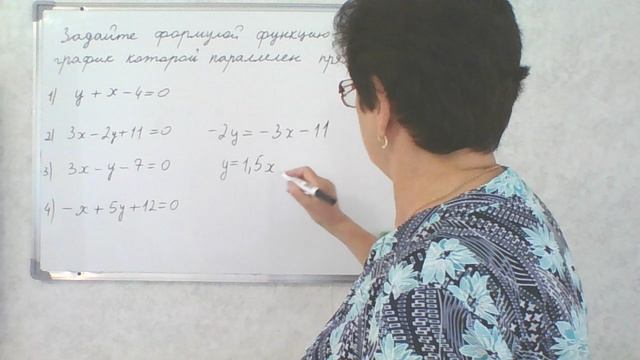 Задайте формулой функцию
график которой параллелен
1) y + x - 4 = 0
2) 3x - 2y + 11 = 0 -2y = -3x - 11
3) 3x - y - 7 = 0 y = 1,5x
4) -x + 5y + 12 = 0